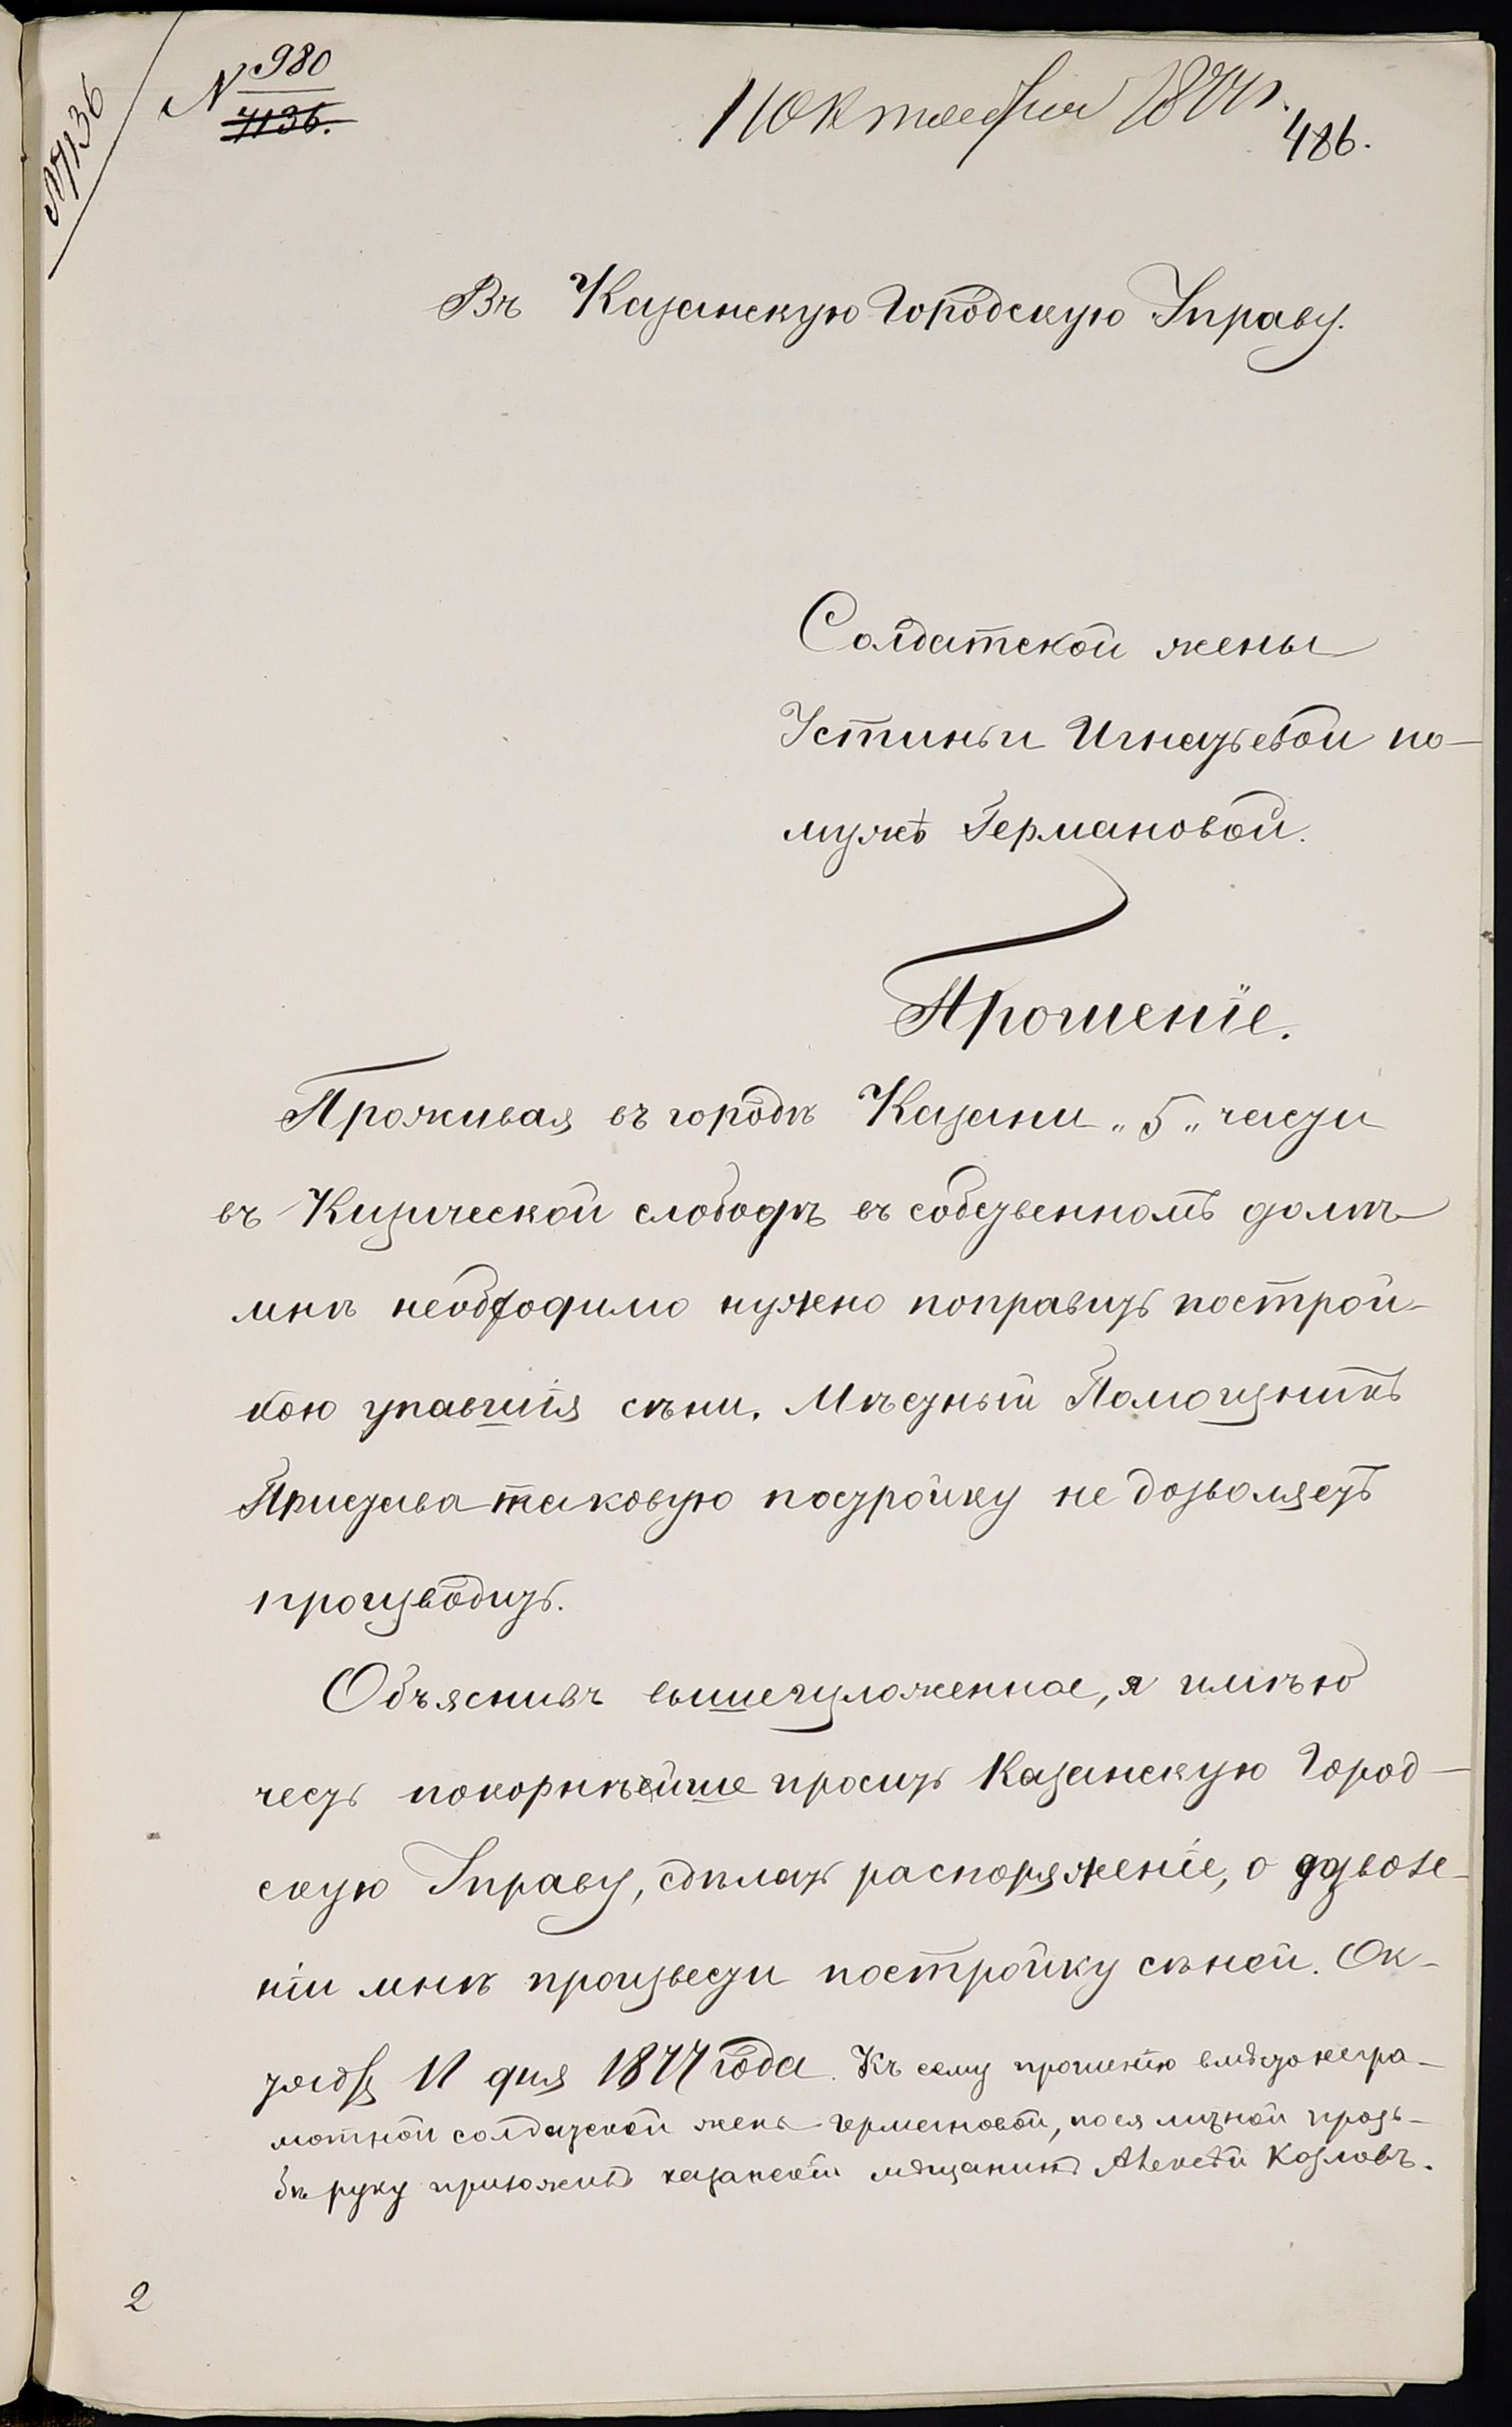 № 7136
№ 980
7136.
11 Октября 1877 г.
486.
Въ Казанскую Городскую Управу.
Солдатской жены
Устиньи Игнатьевой по-
мужѣ Германовой.
Прошеніе.
Проживая въ городѣ Казани „5„ части
въ Кизической слободѣ въ собственномъ домѣ
мнѣ необходимо нужно поправить построй-
кою упавшія сѣни. Мѣстный Помощникъ
Пристава таковую постройку не дозволяетъ
производить.
Объяснивъ вышеизложенное, я имѣю
честь покорнѣейше просить Казанскую Город-
скую Управу, сдѣлать распоряженіе, о дозволе-
ніи мнѣ произвести постройку сѣней. Ок-
тября 11 дня 1877 года. Къ сему прошенію вмѣсто негра-
мотной солдатской жены Германовой, по ея личной прозь-
бѣ руку приложилъ казанскій мѣщанинъ Алексѣй Козловъ.
2